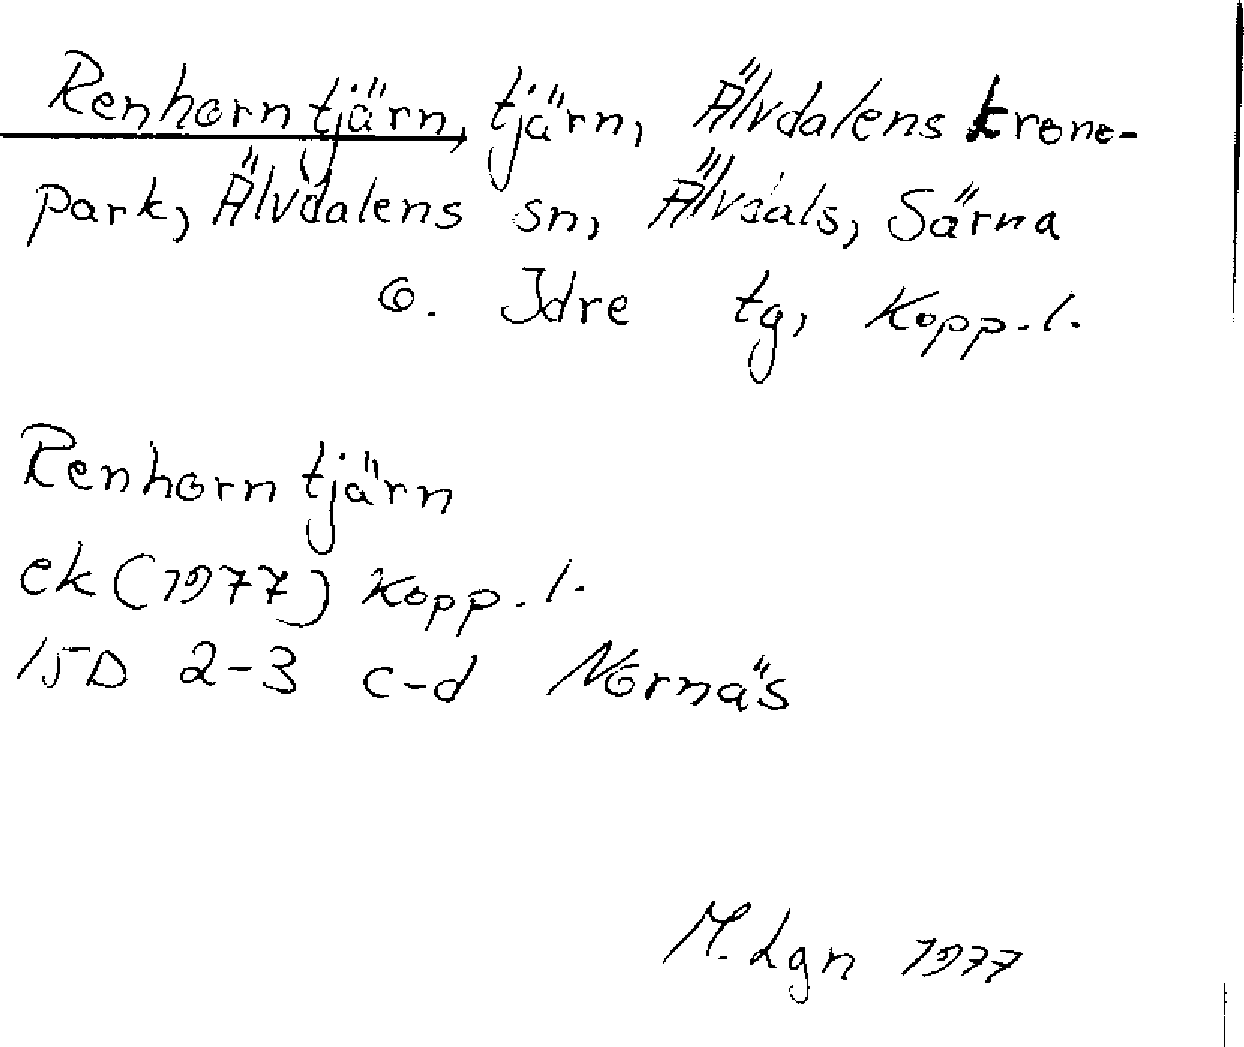 Renhorntjärn, tjärn, Älvdalens krono-
park, Älvdalens sn, Älvdals, Särna
o. Idre tg, Kopp. l.
Renhorntjärn
ek (1977) Kopp. l.
15D 2-3 c-d Nornäs
M. Lgn 1977